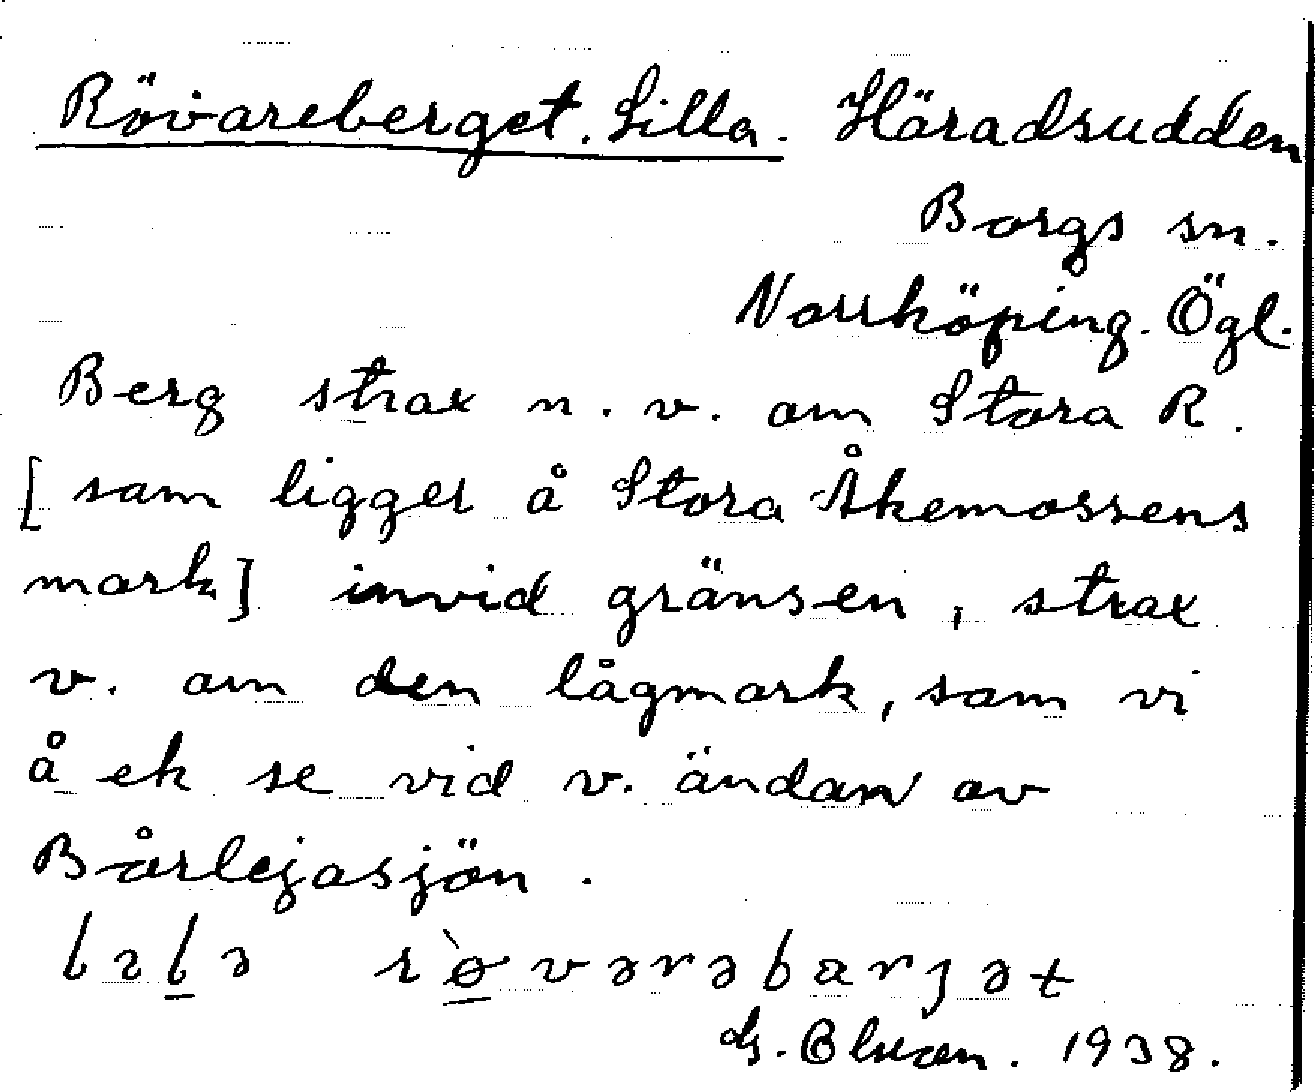 Rövareberget. Lilla. Häradsudden
Borgs sn.
Norrköping. Ögl.
Berg strax n. v. om Stora R.
[som ligger å Stora Åkemossens
mark] invid gränsen, strax
v. om den lågmark, som vi
å ek se vid v. ändan av
Bårlejasjön.
rövərəbarjət
1938.